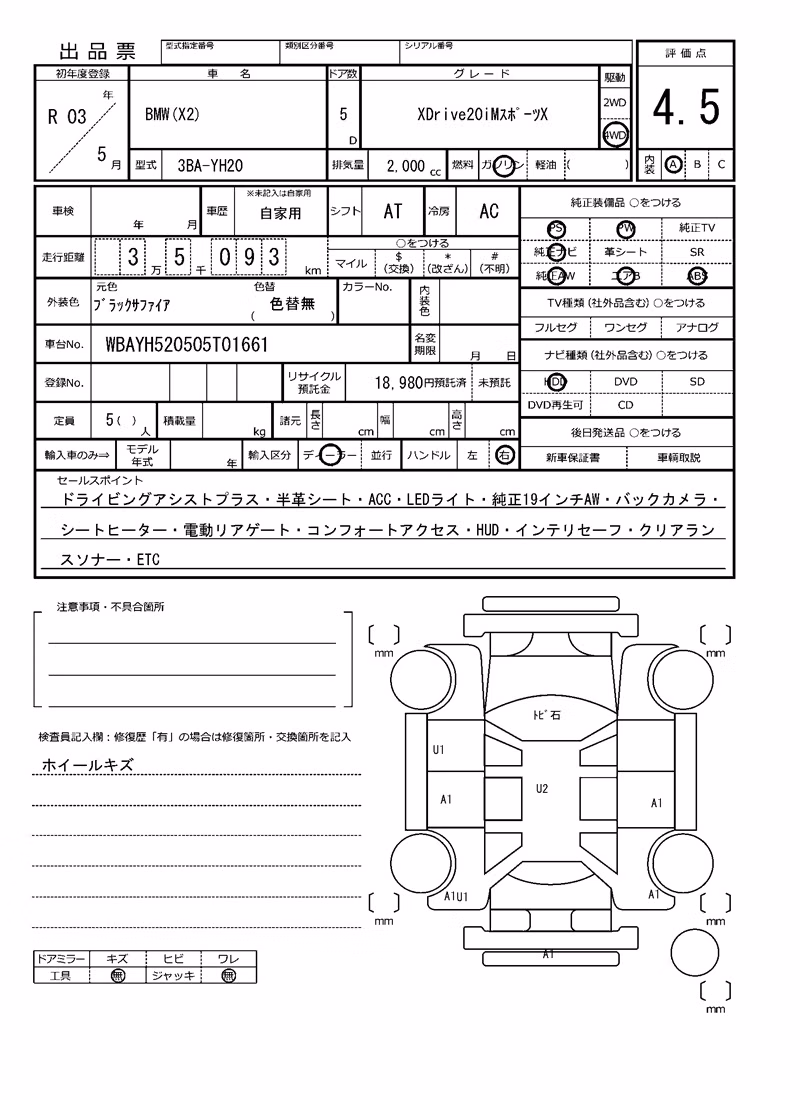 出品票
型式指定番号
類別区分番号
シリアル番号
評価点
4.5
初年度登録
車名
ドア数
グレード
駆動
年
R 03
5
月
BMW(X2)
5
D
XDrive20iMスポーツX
2WD
4WD
型式
3BA-YH20
排気量
2,000 cc
燃料
ガソリン
軽油
( )
内装
A
B
C
車検
年
月
車歴
※未記入は自家用
自家用
シフト
AT
冷房
AC
純正装備品 ○をつける
PS
PW
純正TV
純正ナビ
革シート
SR
純正AW
エアB
ABS
走行距離
3 万 5 千 0 9 3 km
○をつける
マイル
$
(交換)
*
(改ざん)
#
(不明)
外装色
元色
ブラックサファイア
色替
( 色替無 )
カラーNo.
内装色
TV種類(社外品含む)○をつける
フルセグ
ワンセグ
アナログ
車台No.
WBAYH520505T01661
名変期限
月
日
ナビ種類(社外品含む)○をつける
HDD
DVD
SD
DVD再生可
CD
登録No.
リサイクル預託金
18,980円預託済
未預託
定員
5( )
人
積載量
kg
諸元
長さ
cm
幅
cm
高さ
cm
後日発送品 ○をつける
新車保証書
車輌取説
輸入車のみ⇒
モデル年式
年
輸入区分
ディーラー
並行
ハンドル
左
右
セールスポイント
ドライビングアシストプラス・半革シート・ACC・LEDライト・純正19インチAW・バックカメラ・
シートヒーター・電動リアゲート・コンフォートアクセス・HUD・インテリセーフ・クリアラン
スソナー・ETC
注意事項・不具合箇所
検査員記入欄:修復歴「有」の場合は修復箇所・交換箇所を記入
ホイールキズ
ドアミラー
キズ
ヒビ
ワレ
工具
無
ジャッキ
無
mm
mm
トビ石
U1
U2
A1
A1
A1U1
A1
A1
mm
mm
mm